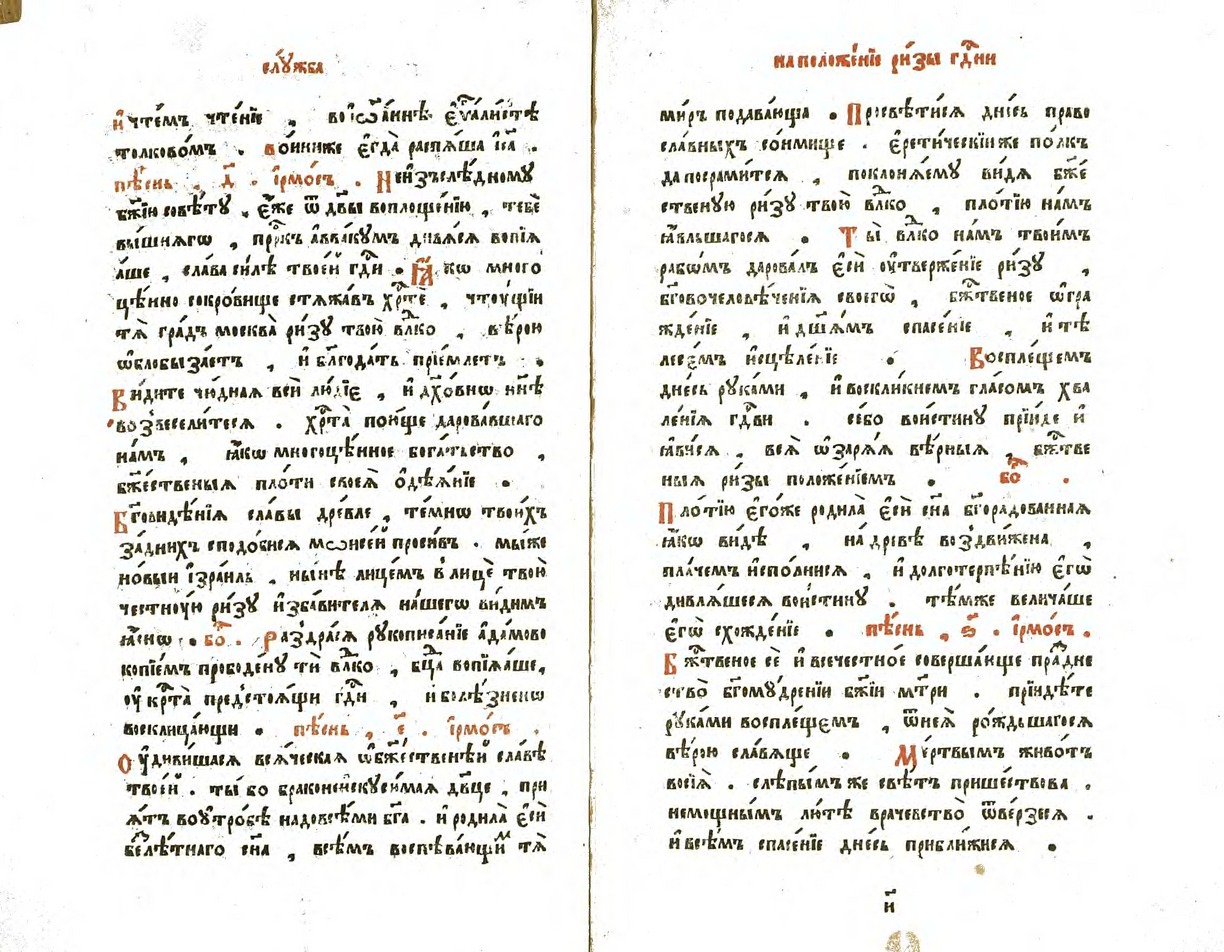 слꙋ́жба
и҆чте́мъ чте́нїе , воїѡа́ннѣ є҆ѵⷢ҇али́стѣ
толково́мъ . во́и҆ниже є҆гда̀ распѧ́ша і҆са .
пѣ́снь . д҃ . і҆рмо́съ . Неи҆зъслѣ́дному
бж҃їю совѣ́тꙋ , є҆́же ѿ дв҃ы воплоще́нїю , тебѐ
вы́шнѧгѡ , прⷪ҇ркъ а҆ввакꙋ́мъ дивѧ́сѧ вопїѧ́
а҆ше , сла́ва си́лѣ твое́й гдⷭ҇и . Ꙗ҆́кѡ много
цѣ́нно сокро́вище стѧжа́въ хрⷭ҇тѐ , чтꙋ́щїи
тѧ̀ гра́дъ москва̀ ри́зꙋ твою̀ влⷣко , вѣ́рою
ѡ҆блобыза́етъ , и҆ блгⷣода́ть прїе́млетъ .
Ви́дите чю́днаѧ всѝ лю́дїє , и҆ дх҃о́внѡ нн҃ѣ
возвесели́тесѧ . хрⷭ҇та̀ пою́ще дарова́вшаго
на́мъ , ꙗ҆́кѡ многоцѣ́нное бога́тьство ,
бж҃ественыѧ пло́ти своеѧ̀ ѻ҆дѣѧ́нїе .
Бг҃ови́дѣнїѧ сла́вы дре́вле , те́мнѡ твои́хъ
за́днихъ сподо́бисѧ мѡѵсе́й проси́въ . мы́же
но́выи і҆зра́иль , ны́нѣ лице́мъ в лицѐ твою̀
честнꙋ́ю ри́зꙋ и҆зба́вителѧ на́шегѡ ви́димъ
ꙗ҆́снѡ . бо . Раздра́сѧ рꙋкописа́нїе а҆да́мово
копїе́мъ прободе́нꙋ тѝ влⷣко , бц҃а вопїѧ́ше,
ᲂу҆ крⷭ҇та̀ предстоѧ́щи гдⷭ҇и , и҆ болѣ́зненѡ
восклица́ющи . пѣ́снь , є҃ . і҆рмо́съ .
Оу҆диви́шасѧ всѧ́ческаѧ ѡ҆бж҃е́ственѣй сла́вѣ
твое́й . ты́ бо браконеискꙋси́маѧ дв҃це , при
ѧ́тъ воꙋ҆тро́бѣ надовсѣ́ми бг҃а . и҆ родила̀ є҆сѝ
безлѣ́тнаго сн҃а , всѣ́мъ воспѣва́ющимъ тѧ̀
наположе́нїе ри́зы гдⷭ҇ни
ми́ръ подава́юща . Просвѣти́сѧ дне́сь право
сла́вныхъ со́нмище . є҆рети́ческїиже по́лкъ
да посрами́тсѧ , поклонѧ́емꙋ ви́дѧ бж҃е
ственꙋю ри́зꙋ твою̀ влⷣко , пло́тїю на́мъ
ꙗ҆́вльшагосѧ . Ты̀ влⷣко на́мъ твои́мъ
рабѡ́мъ дарова́лъ є҆сѝ ᲂу҆твержде́нїе ри́зꙋ ,
бг҃овочеловѣ́ченїѧ своегѡ̀ , бжⷭ҇твеное ѡ҆гра
жде́нїе , и҆ дш҃а́мъ спасе́нїе , и҆ тѣ
лесе́мъ и҆сцѣле́нїе . Воспле́щемъ
дне́сь рꙋка́ми , и҆ воскли́кнемъ гла́сомъ хва
ле́нїѧ гдⷭ҇ви . се́бо вои́стинꙋ прїи́де и҆
ꙗ҆ви́сѧ , всѧ̀ ѡ҆зарѧ́ѧ вѣ́рныѧ , бжⷭ҇тве
ныѧ ри́зы положе́нїемъ . бо .
Пло́тїю є҆го́же родила̀ є҆сѝ сн҃а бг҃ора́дованнаѧ
ꙗ҆́кѡ ви́дѣ , на дре́вѣ воздви́жена ,
пла́чемъ и҆спо́лнисѧ , и҆ долготерпѣ́нїю є҆гѡ̀
дивлѧ́шесѧ вои́стинꙋ . тѣ́мже велича́ше
є҆гѡ̀ схожде́нїе . пѣ́снь , ѕ҃ . і҆рмо́съ .
Бжⷭ҇твеное сѐ и҆ всече́стное соверша́юще пра́здне
ство̀ бг҃омꙋ́дренїи бж҃їи мт҃ри . прїиди́те
рꙋка́ми воспле́щемъ , ѿнеѧ̀ ро́ждьшагосѧ
вѣ́рою сла́вѧще . Ме́ртвымъ живо́тъ
восїѧ̀ . слѣпы́мъже свѣ́тъ прише́ствова .
немощны́мъ лю́тѣ врачевство̀ ѿве́рзесѧ .
и҆ всѣ́мъ спасе́нїе дне́сь прибли́жисѧ .
и҃